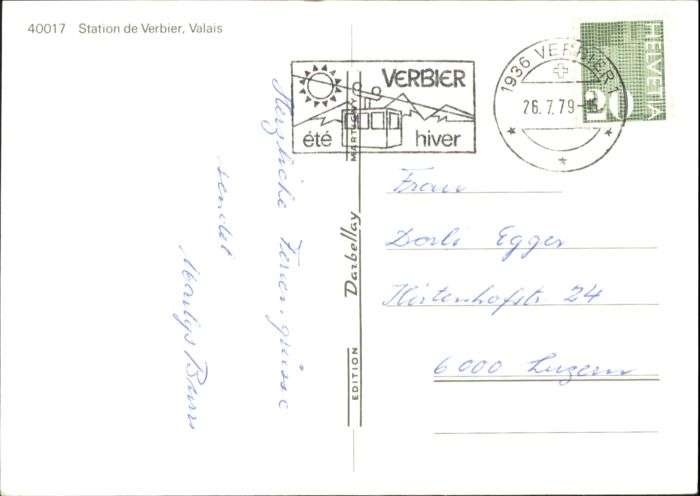 40017 Station de Verbier, Valais
VERBIER
été hiver
1936 VERBIER 1
26.7.79
HELVETIA
20
Herzliche Feriengrüsse
sendet
Marlys
EDITION Darbellay MARTIGNY
Frau
Dorli Egger
Hirtenhofstr 24
6000 Luzern